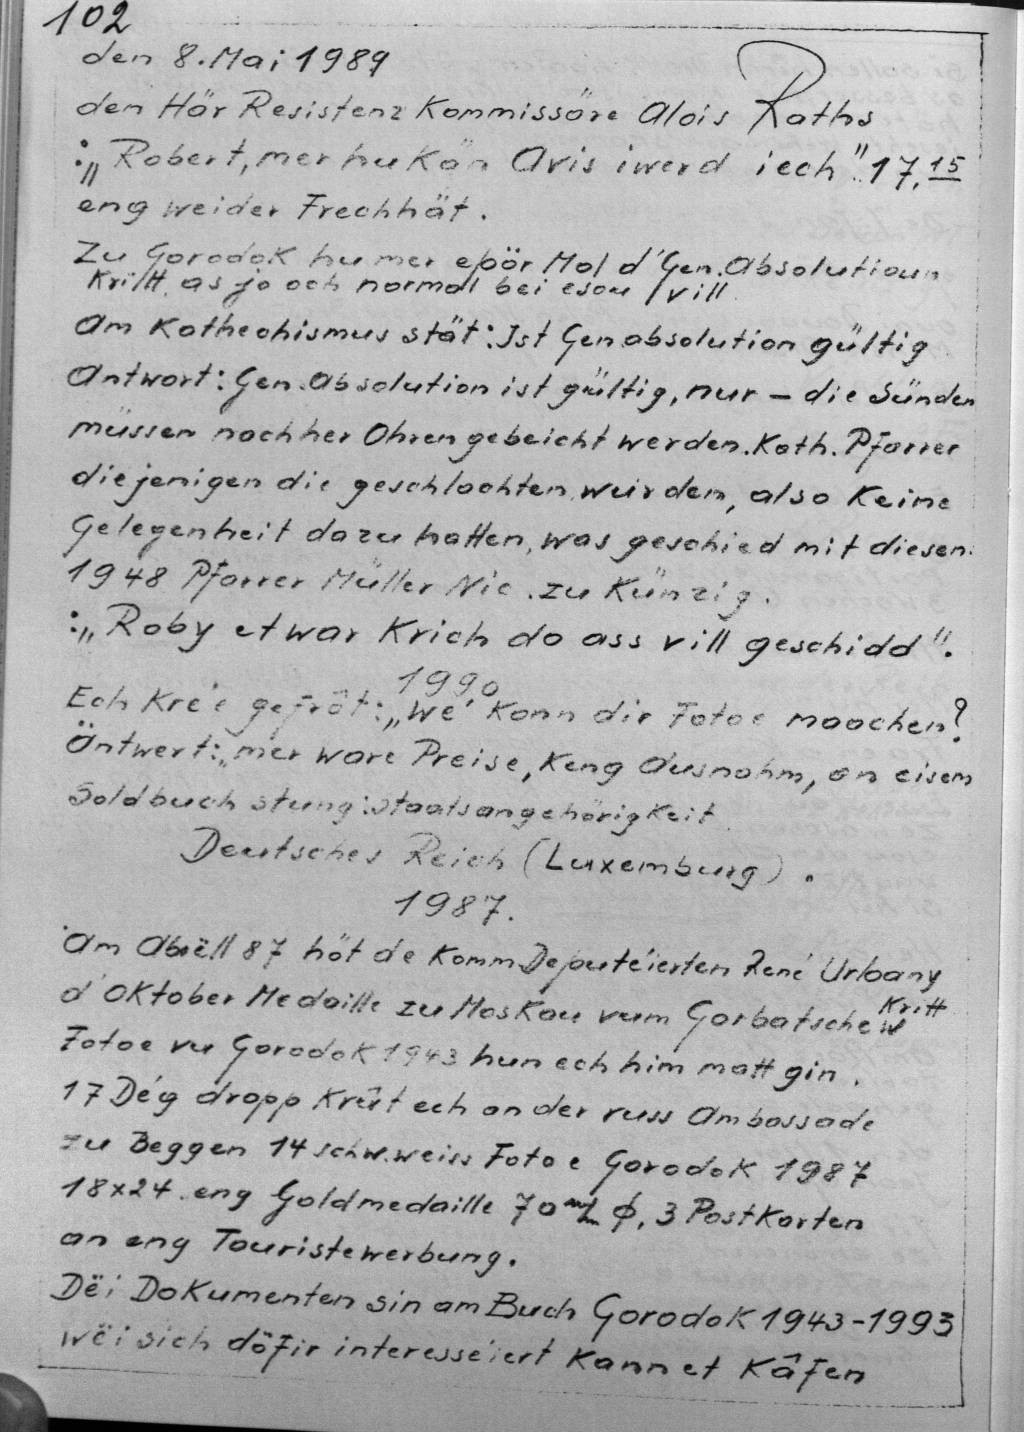 102
den 8. Mai 1989
den Här Resistenz Kommissäre Alois Raths
:„Robert, mer hu kän Avis iwerd iech" 17,15
eng weider Frechhät.
Zu Gorodok hu mer epör Mol d'Gen. Absolutioun
Kritt, as jo och normal bei esou vill
Am Kathechismus stät: Ist Gen absolution gültig
Antwort: Gen. Absolution ist gültig, nur – die Sünden
müssen nachher Ohrengebeicht werden. Kath. Pfarrer
diejenigen die geschlachten wurden, also Keine
Gelegenheit dazu hatten, was geschied mit diesen.
1948 Pfarrer Müller Nic. zu Künzig.
:„Roby et war Krich do ass vill geschidd".
1990
Ech Kréi gefrôt: „Wé Konn dir Fotoe maachen?
Äntwert: „mer ware Preise, Keng Ausnahm, an eisem
Soldbuch stung: Staatsangehörigkeit
Deutsches Reich (Luxemburg).
1987.
Am Abrëll 87 höt de Komm Deputéierten René Urbany
d'Oktober Medaille zu Moskau vum Gorbatschew Kritt
Fotoe vu Gorodok 1943 hun ech him matt gin.
17 Dég dropp Krût ech an der russ Ambassade
zu Beggen 14 schw. weiss Fotoe Gorodok 1987
18x24. eng Goldmedaille 70 m/m ϕ, 3 Postkarten
an eng Touristewerbung.
Dëi Dokumenten sin am Buch Gorodok 1943-1993
wëi sich döfir interesséiert Kann et Kâfen